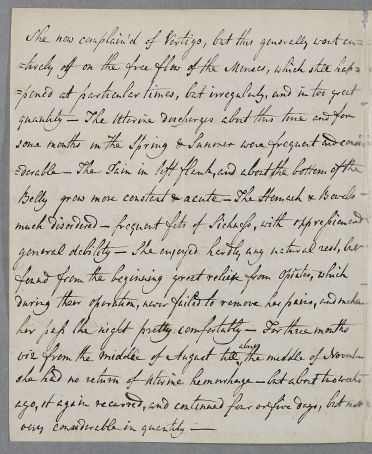 She now complain'd of Vertigo, but this generally went en=
=tirely off on the free flow of the Menses, which still hap=
=pened at particular times, but irregularly, and in too great
quantity — The Uterine discharges about this time and for
some months in the Spring & Summer were frequent and consi
=derable — The Pain in left flank, and about the bottom of the
Belly grew more constant & acute — The Stomach & Bowels
much disordered — frequent fits of Sickness, with oppression and
general debility — She enjoyed hardly any natural rest, but
found from the beginning great relief from Opiates, which
during their operation, never failed to remove her pains, and make
her pass the night pretty comfortably — For three months
viz from the middle of August till about the middle of November
she had no return of Uterine hemorrhage — but about two weeks
ago, it again recurred, and continued four or five days, but not
very considerable in quantity —